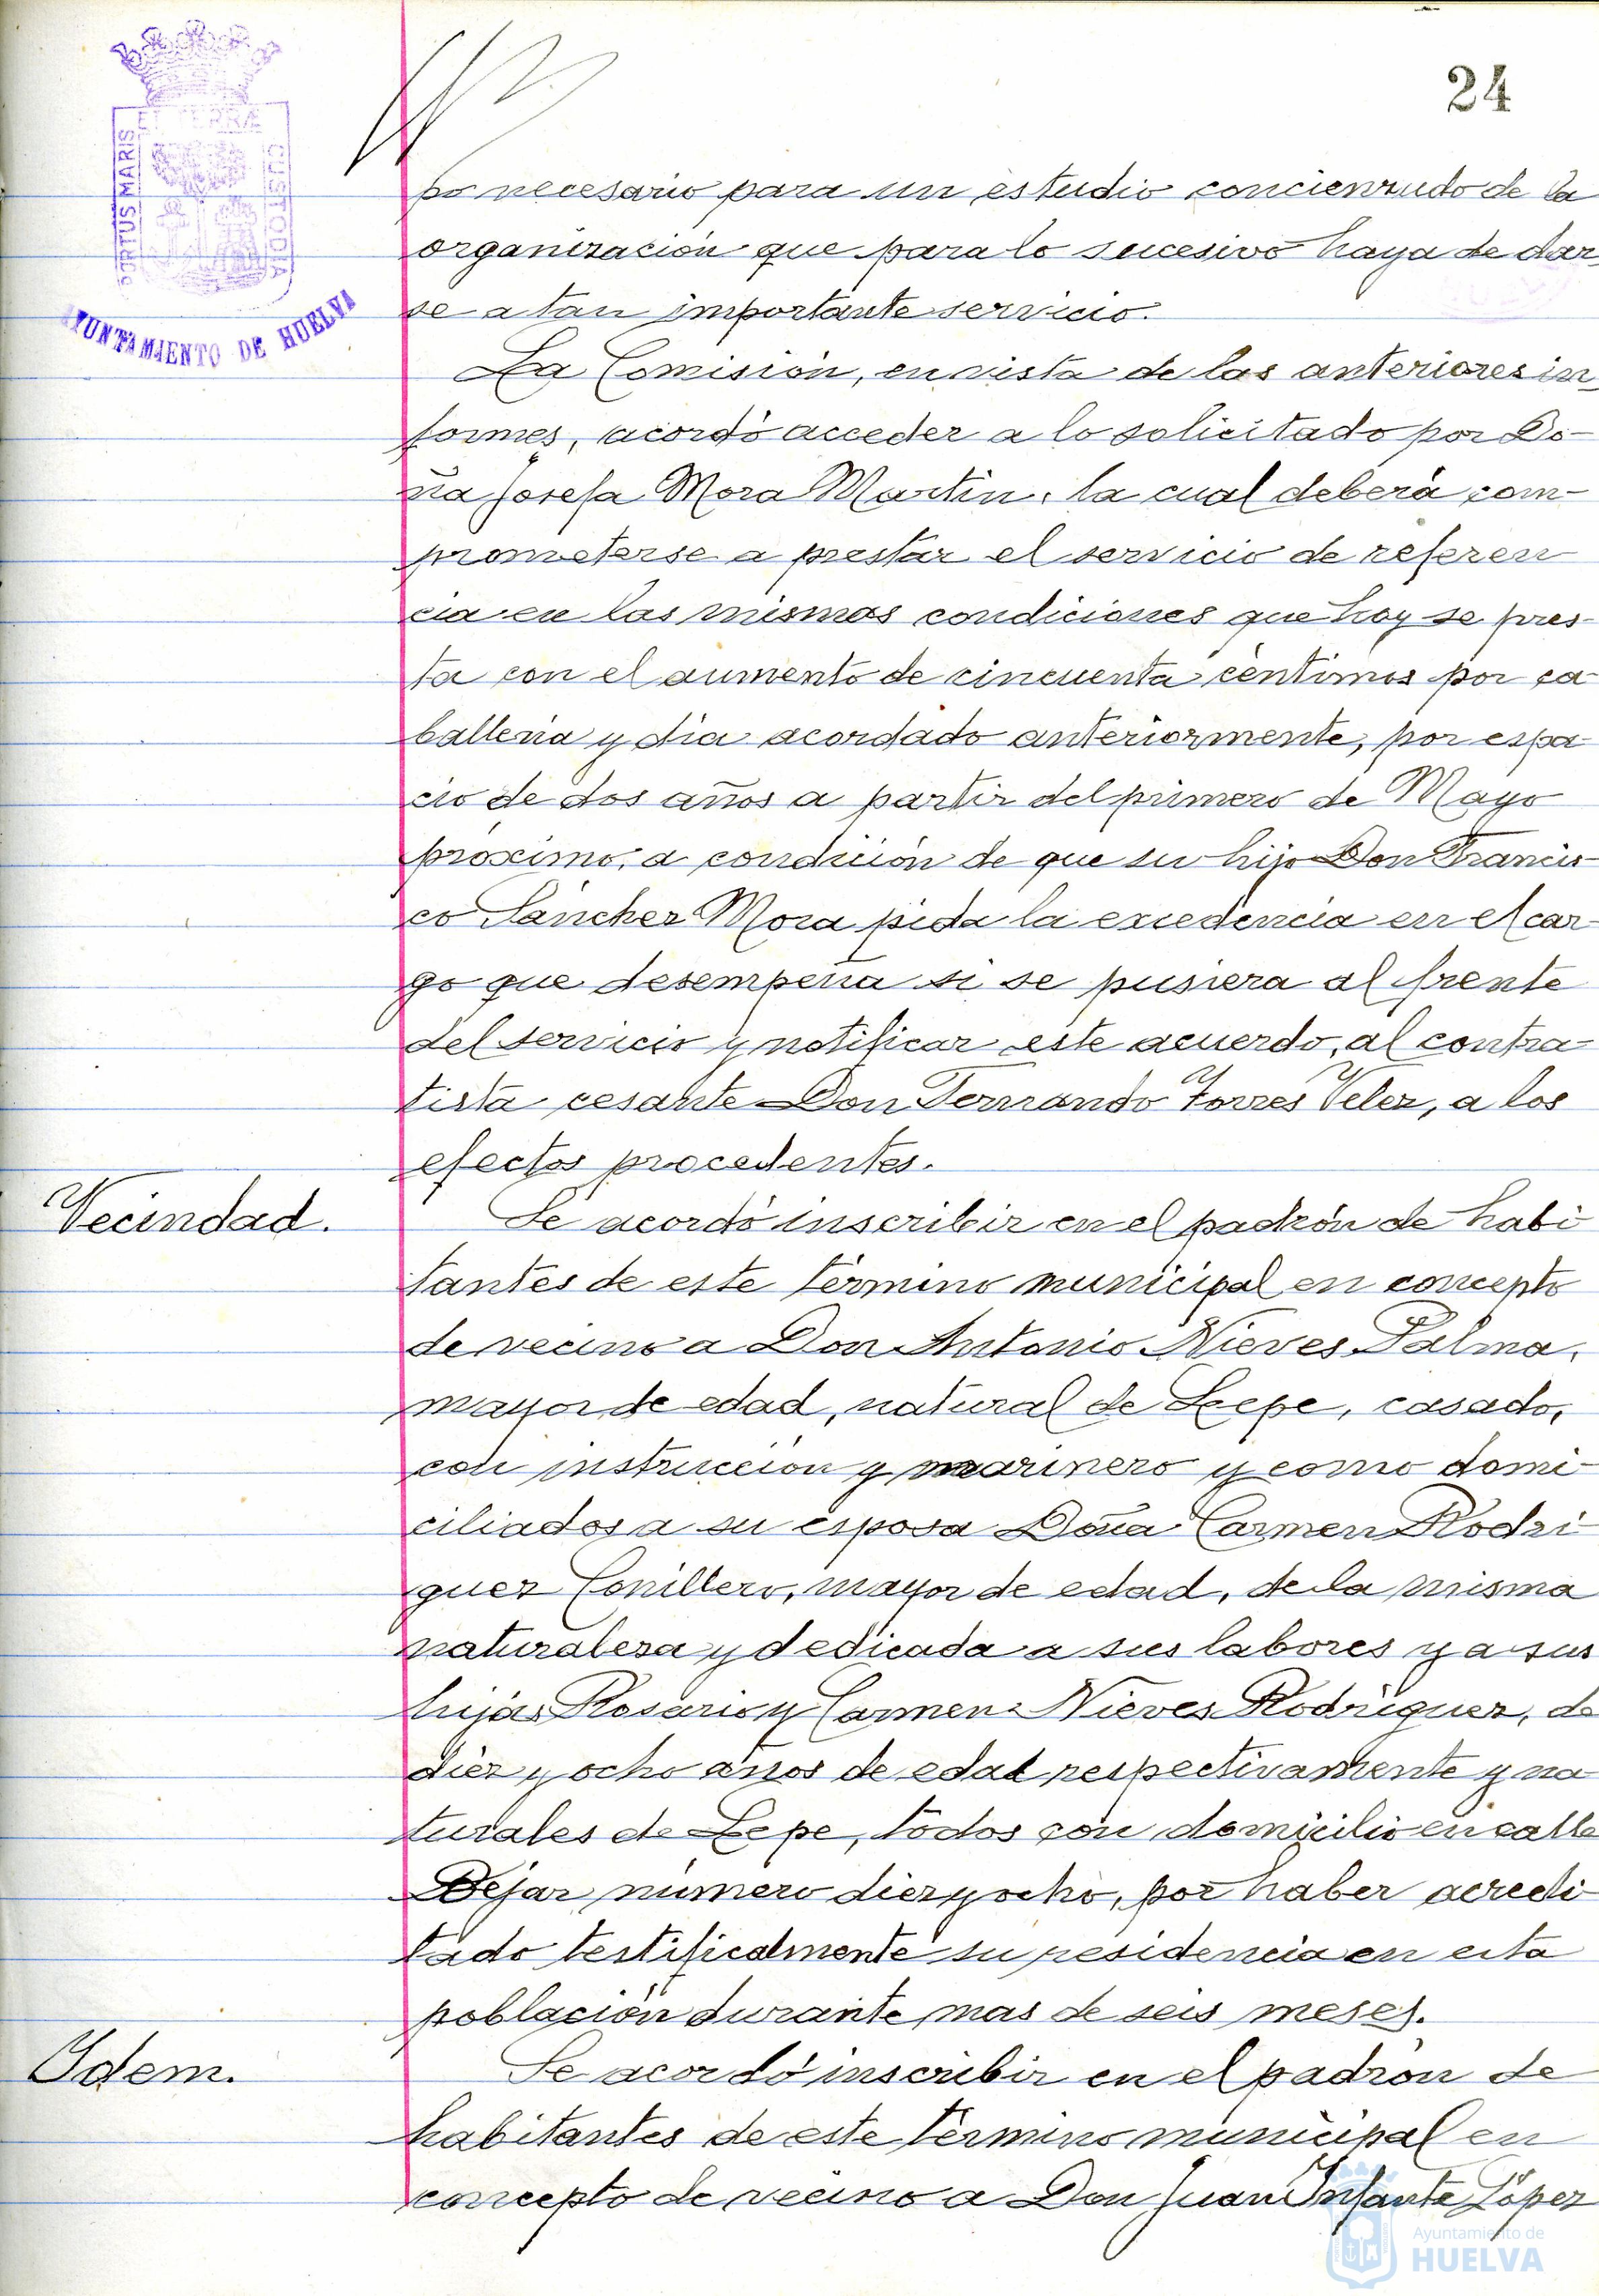 24
PORTUS MARIS
ET TERRÆ
CUSTODIA
AYUNTAMIENTO DE HUELVA
po necesario para un estudio concienzudo de la
organización que para lo sucesivo haya de dar
se a tan importante servicio.
La Comisión, en vista de los anteriores in
formes, acordó acceder a lo solicitado por Do-
ña Josefa Mora Martin, la cual deberá com-
prometerse a prestar el servicio de referen
cia en las mismas condiciones que hoy se pres-
ta con el aumento de cincuenta céntimos por ca-
ballería y dia acordado anteriormente, por espa-
cio de dos años a partir del primero de Mayo
próximo, a condición de que su hijo Don Francis-
co Sánchez Mora pida la excedencia en el car-
go que desempeña si se pusiera al frente
del servicio y notificar este acuerdo, al contra-
tista cesante Don Fernando Torres Velez, a los
efectos procedentes.
Vecindad.
Se acordó inscribir en el padrón de habi
tantes de este término municipal en concepto
de vecino a Don Antonio Nieves Palma,
mayor de edad, natural de Lepe, casado,
con instrucción y marinero y como domi-
ciliados a su esposa Doña Carmen Rodri-
guez Conillero, mayor de edad, de la misma
naturaleza y dedicada a sus labores y a sus
hijas Rosario y Carmen Nieves Rodriguez, de
diez y ocho años de edad respectivamente y na-
turales de Lepe, todos con domicilio en calle
Bejar número diez y ocho, por haber acredi-
tado testificalmente su residencia en esta
población durante mas de seis meses.
Ydem.
Se acordó inscribir en el padrón de
habitantes de este término municipal en
concepto de vecino a Don Juan Infante López
Ayuntamiento de
HUELVA